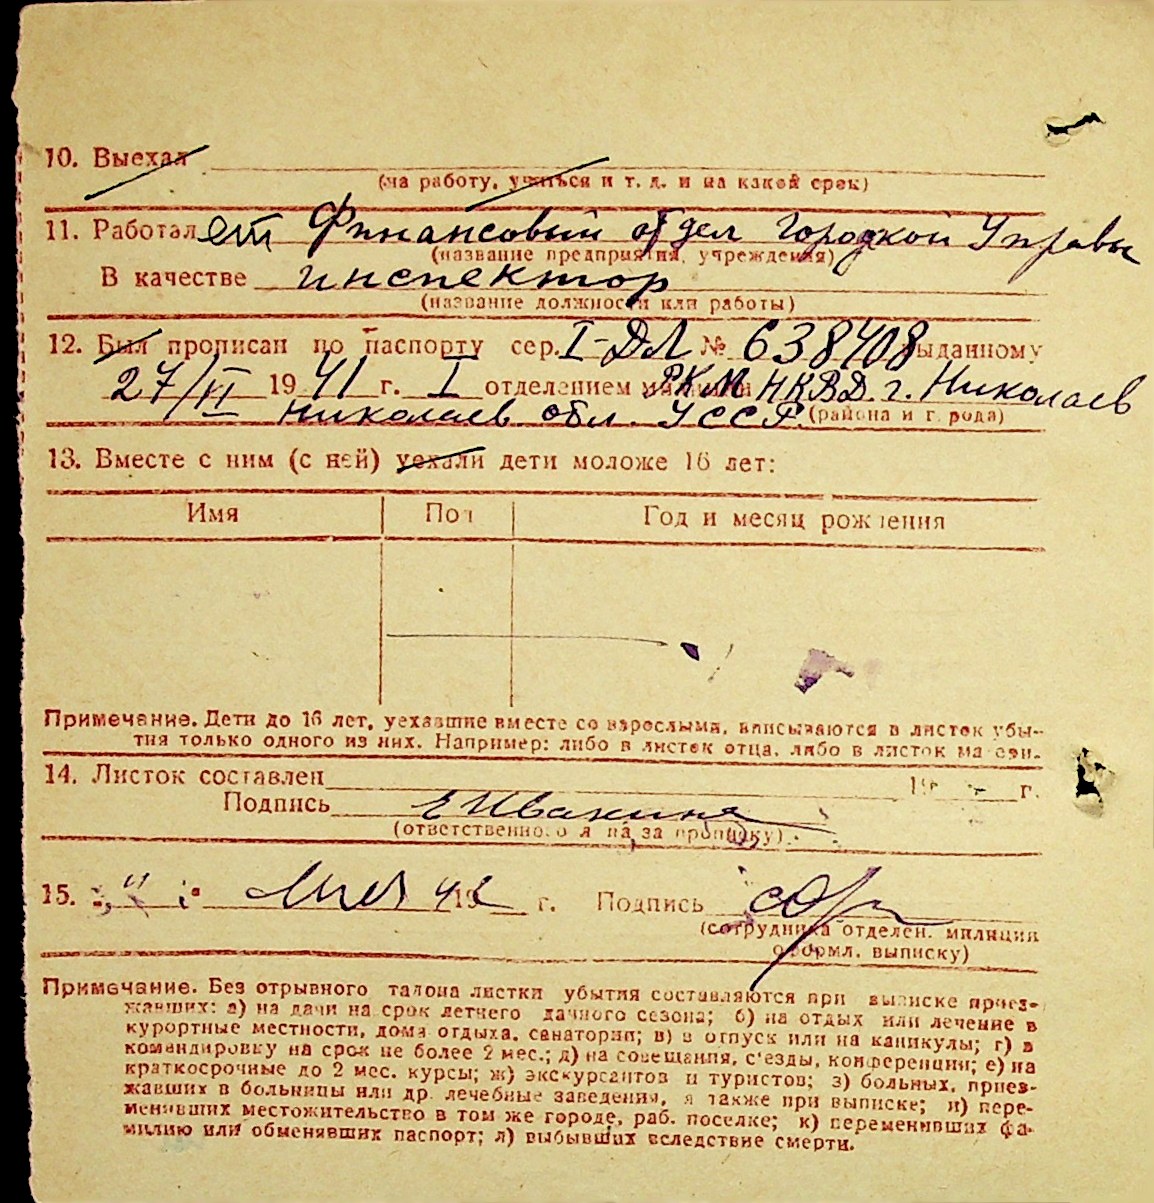 10. Выехал
(на работу, учиться и т. д. и на какой срок)
11. Работает Финансовый отдел Городской Управы
(название предприятия, учреждения)
В качестве инспектор
(название должности или работы)
12. Был прописан по паспорту сер. I-ДЛ № 638408 выданному
27/VI 1941 г. I отделением милиции РКМ НКВД г. Николаев
Николаев обл. УССР (района и города)
13. Вместе с ним (с ней) уехали дети моложе 16 лет:
Имя Пол Год и месяц рождения
Примечание. Дети до 16 лет, уехавшие вместе со взрослыми, вписываются в листок убы-
тия только одного из них. Например: либо в листок отца, либо в листок матери.
14. Листок составлен 19 г.
Подпись ЕИвакина
(ответственного лица за прописку)
15. " " 1942 г. Подпись
(сотрудника отделен. милиции
оформл. выписку)
Примечание. Без отрывного талона листки убытия составляются при выписке приез-
жавших: а) на дачи на срок летнего дачного сезона; б) на отдых или лечение в
курортные местности, дома отдыха, санатории; в) в отпуск или на каникулы; г) в
командировку на срок не более 2 мес.; д) на совещания, с'езды, конференции; е) на
краткосрочные до 2 мес. курсы; ж) экскурсантов и туристов; з) больных, приез-
жавших в больницы или др. лечебные заведения, а также при выписке; и) пере-
менивших местожительство в том же городе, раб. поселке; к) переменивших фа-
милию или обменявших паспорт; л) выбывших вследствие смерти.